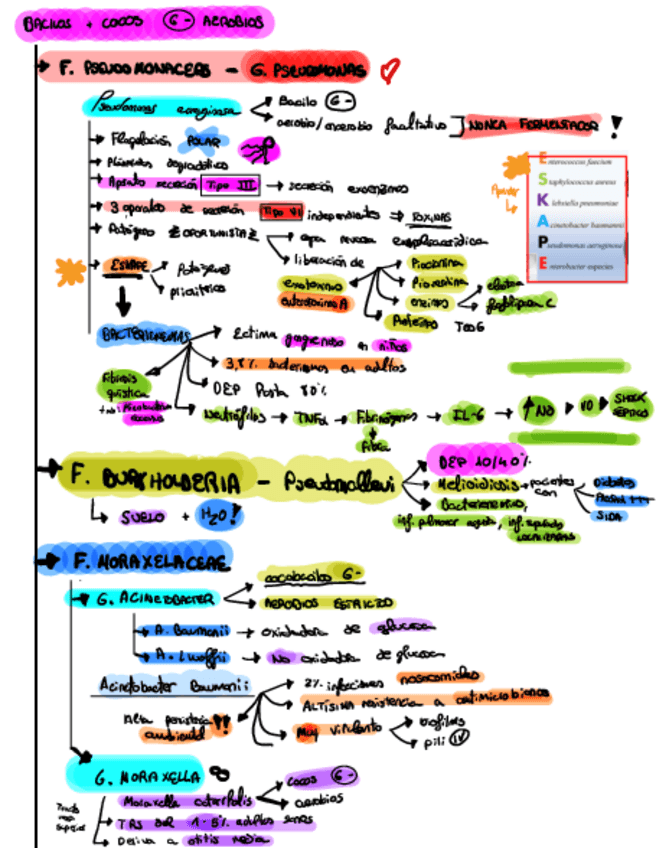 BACILOS + COCOS G- AEROBIOS
F. PSEUDOMONACEAS - G. PSEUDOMONAS
Pseudomonas aeruginosa
Bacilo G-
aerobio/anaerobio facultativo
NUNCA FERMENTADOR!
Flagelación POLAR
Aparato secreción Tipo III → secreción exoenzimas
3 aparatos de secreción Tipo VI independientes → TOXINAS
Patógeno OPORTUNISTA
capa mucosa exopolisacárida
liberación de
Piocianina
exotoxina
enterotoxina A
enzimas
elastasa
fosfolipasa C
Proteasas
ESKAPE
Patógenos
Enterococcus faecium
Staphylococcus aureus
Klebsiella pneumoniae
Acinetobacter baumannii
Pseudomonas aeruginosa
Enterobacter especies
BACTERIEMIAS
Ectima gangrenoso en niños
3,8% bacteriemias en adultos
DEP Posta 80%
Fibrosis quística
Neutrófilos → TNFα → Fibrinógeno → IL-6 → NO VD SHOCK SÉPTICO
Fibra
F. BURKHOLDERIA - Pseudomallei
SUELO + H2O!
DEP 10/40%
Melioidosis → pacientes con
Diabetes
SIDA
Bacteriemia,
inf. pulmonar aguda, inf. supurada
LOCALIZADAS
F. MORAXELACEAE
G. ACINETOBACTER
cocobacilos G-
AEROBIOS ESTRICTO
A. Baumanii → oxidadora de glucosa
A. Lwoffii → No oxidadora de glucosa
Acinetobacter Baumanii
2% infecciones nosocomiales
ALTÍSIMA resistencia a antimicrobianos
Alta persistencia ambiental!!
Muy virulento
biofilms
pili IV
G. MORAXELLA
Moraxella catarralis
cocos G-
aerobios
TRS SUP 1-5% adultos sanos
Deriva a otitis media